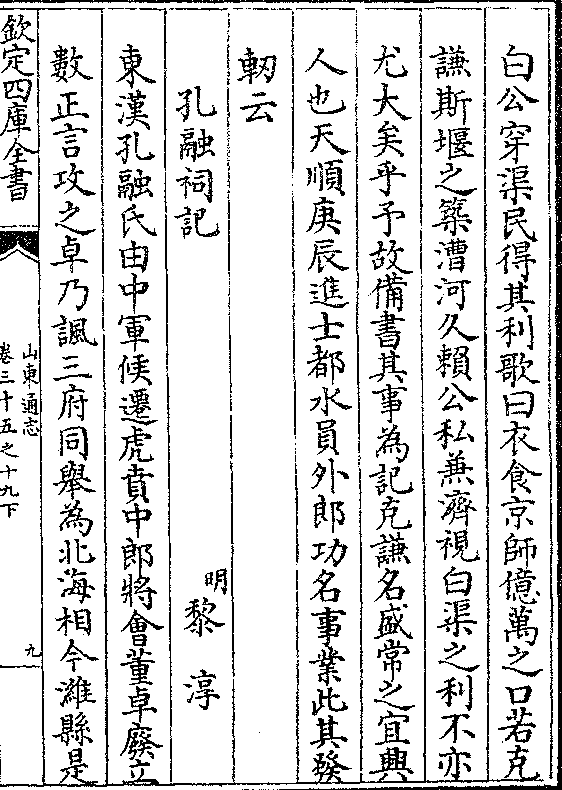 白公穿渠民得其利歌曰衣食京師億萬之口若克
謙斯堰之築漕河久賴公私兼濟視白渠之利不亦
尤大矣乎予故備書其事為記克謙名盛常之宜興
人也天順庚辰進士都水員外郎功名事業此其發
軔云
孔融祠記
明黎淳
東漢孔融氏由中軍候遷虎賁中郎將會董卓廢立
數正言攻之卓乃諷三府同舉為北海相今濰縣是
欽定四庫全書
山東通志
卷三十五之十九下
九